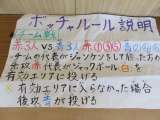 ボッチャルール説明
チーム戦
赤3人 VS 青3人 赤①③⑤ 青②④⑥
チームの代表がジャンケンをして勝った方が
先攻 赤代表がジャックボール 白を
有効エリアに投げる
※有効エリアに入らなかった場合
後攻 青が投げる